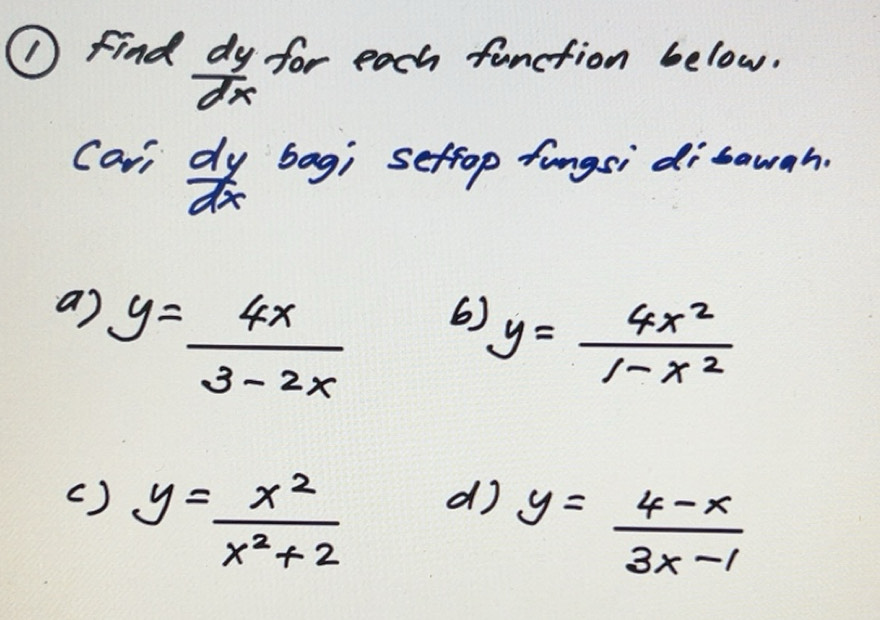 ① Find dy/dx for each function below.
Cari dy/dx bagi setiap fungsi di bawah.
a) y = 4x/(3 - 2x)    b) y = 4x²/(1 - x²)
c) y = x²/(x² + 2)    d) y = (4 - x)/(3x - 1)